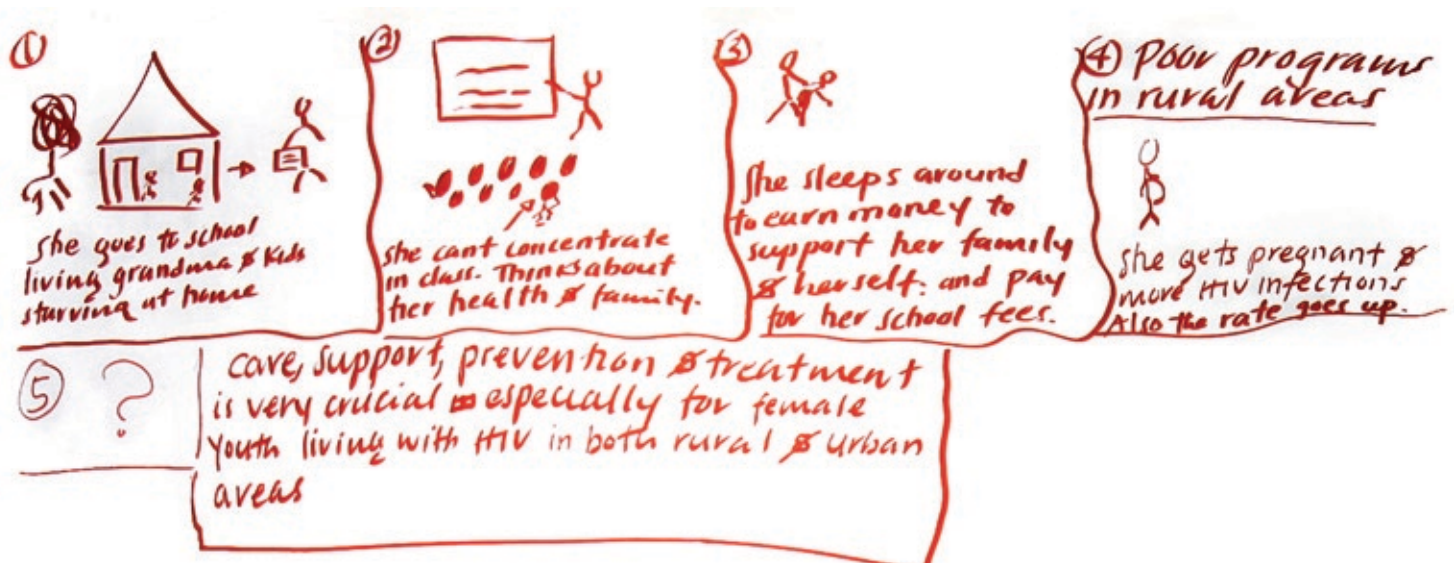 ①
She goes to school
living grandma & kids
starving at home
②
she cant concentrate
in class. Thinks about
her health & family.
③
She sleeps around
to earn money to
support her family
& herself. and pay
for her school fees.
④ Poor programs
in rural areas
She gets pregnant &
more HIV infections
Also the rate goes up.
⑤ ?
care, support, prevention & treatment
is very crucial especially for female
youth living with HIV in both rural & urban
areas